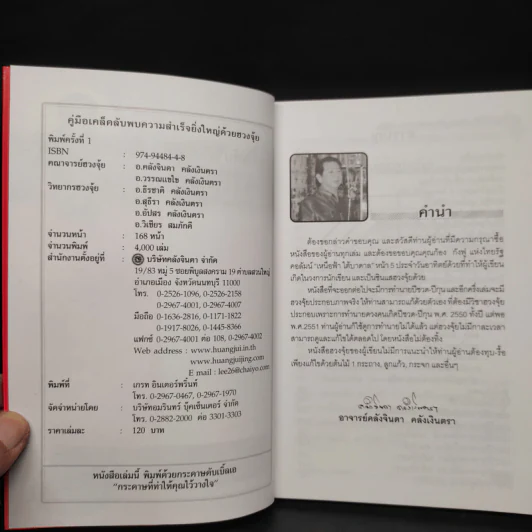 คู่มือเคล็ดลับพบความสำเร็จยิ่งใหญ่ด้วยฮวงจุ้ย
พิมพ์ครั้งที่ 1
ISBN : 974-94484-4-8
คณาจารย์ฮวงจุ้ย : อ.คลังจินดา คลังเงินตรา
อ.วรรณแขไข คลังเงินตรา
วิทยากรฮวงจุ้ย : อ.ธีรชาติ คลังเงินตรา
อ.สุธีรา คลังเงินตรา
อ.อัปสร คลังเงินตรา
อ.วิเชียร สมภักดี
จำนวนหน้า : 168 หน้า
จำนวนพิมพ์ : 4,000 เล่ม
สำนักงานตั้งอยู่ที่ : บริษัทคลังจินดา จำกัด
19/83 หมู่ 5 ซอยพิบูลสงคราม 19 ตำบลสวนใหญ่
อำเภอเมือง จังหวัดนนทบุรี 11000
โทร. 0-2526-1096, 0-2526-2158
0-2967-4001, 0-2967-4007
มือถือ 0-1636-2816, 0-1171-1822
0-1917-8026, 0-1445-8366
แฟกซ์ 0-2967-4001 ต่อ 108, 0-2967-4002
Web address : www.huangjui.in.th
www.huangjuijing.com
E mail : lee26@chaiyo.com
พิมพ์ที่ : เกรท อินเตอร์พริ้นท์
โทร. 0-2967-0467, 0-2967-1970
จัดจำหน่ายโดย : บริษัทอมรินทร์ บุ๊คเซ็นเตอร์ จำกัด
โทร. 0-2882-2000 ต่อ 3301-3303
ราคาเล่มละ : 120 บาท
หนังสือเล่มนี้ พิมพ์ด้วยกระดาษดับเบิ้ลเอ
"กระดาษที่ทำให้คุณไว้วางใจ"
คำนำ
ต้องขอกล่าวคำขอบคุณ และสวัสดีท่านผู้อ่านที่มีความกรุณาซื้อ
หนังสือของผู้อ่านทุกเล่ม และต้องขอขอบคุณก้อง กังฟู แห่งไทยรัฐ
คอลัมน์ "เหนือฟ้า ใต้บาดาล" หน้า 5 ประจำวันอาทิตย์ด้วยที่ทำให้ผู้เขียน
เกิดในวงการนักเขียน และเป็นซินแสฮวงจุ้ยด้วย
หนังสือที่จะออกต่อไปจะมีการทำนายปีชวด-ปีกุนและอีกครึ่งเล่มจะมี
ฮวงจุ้ยประกอบภาพจริง ให้ท่านสามารถแก้ด้วยตัวเอง ที่ต้องมีวิชาฮวงจุ้ย
ประกอบเพราะการทำนายดวงคนเกิดปีชวด-ปีกุน พ.ศ. 2550 ทั้งปี แต่พอ
พ.ศ.2551 ท่านผู้อ่านก็ใช้ดูการทำนายไม่ได้แล้ว แต่ฮวงจุ้ยไม่มีกาลเวลา
สามารถดูและแก้ไขได้ตลอดไป โดยหนังสือไม่ต้องทิ้ง
หนังสือฮวงจุ้ยของผู้เขียนไม่มีการแนะนำให้ท่านผู้อ่านต้องทุบ-รื้อ
เพียงแก้ไขด้วยต้นไม้ 1 กระถาง, ลูกแก้ว, กระจก และอื่นๆ
อาจารย์คลังจินดา คลังเงินตรา